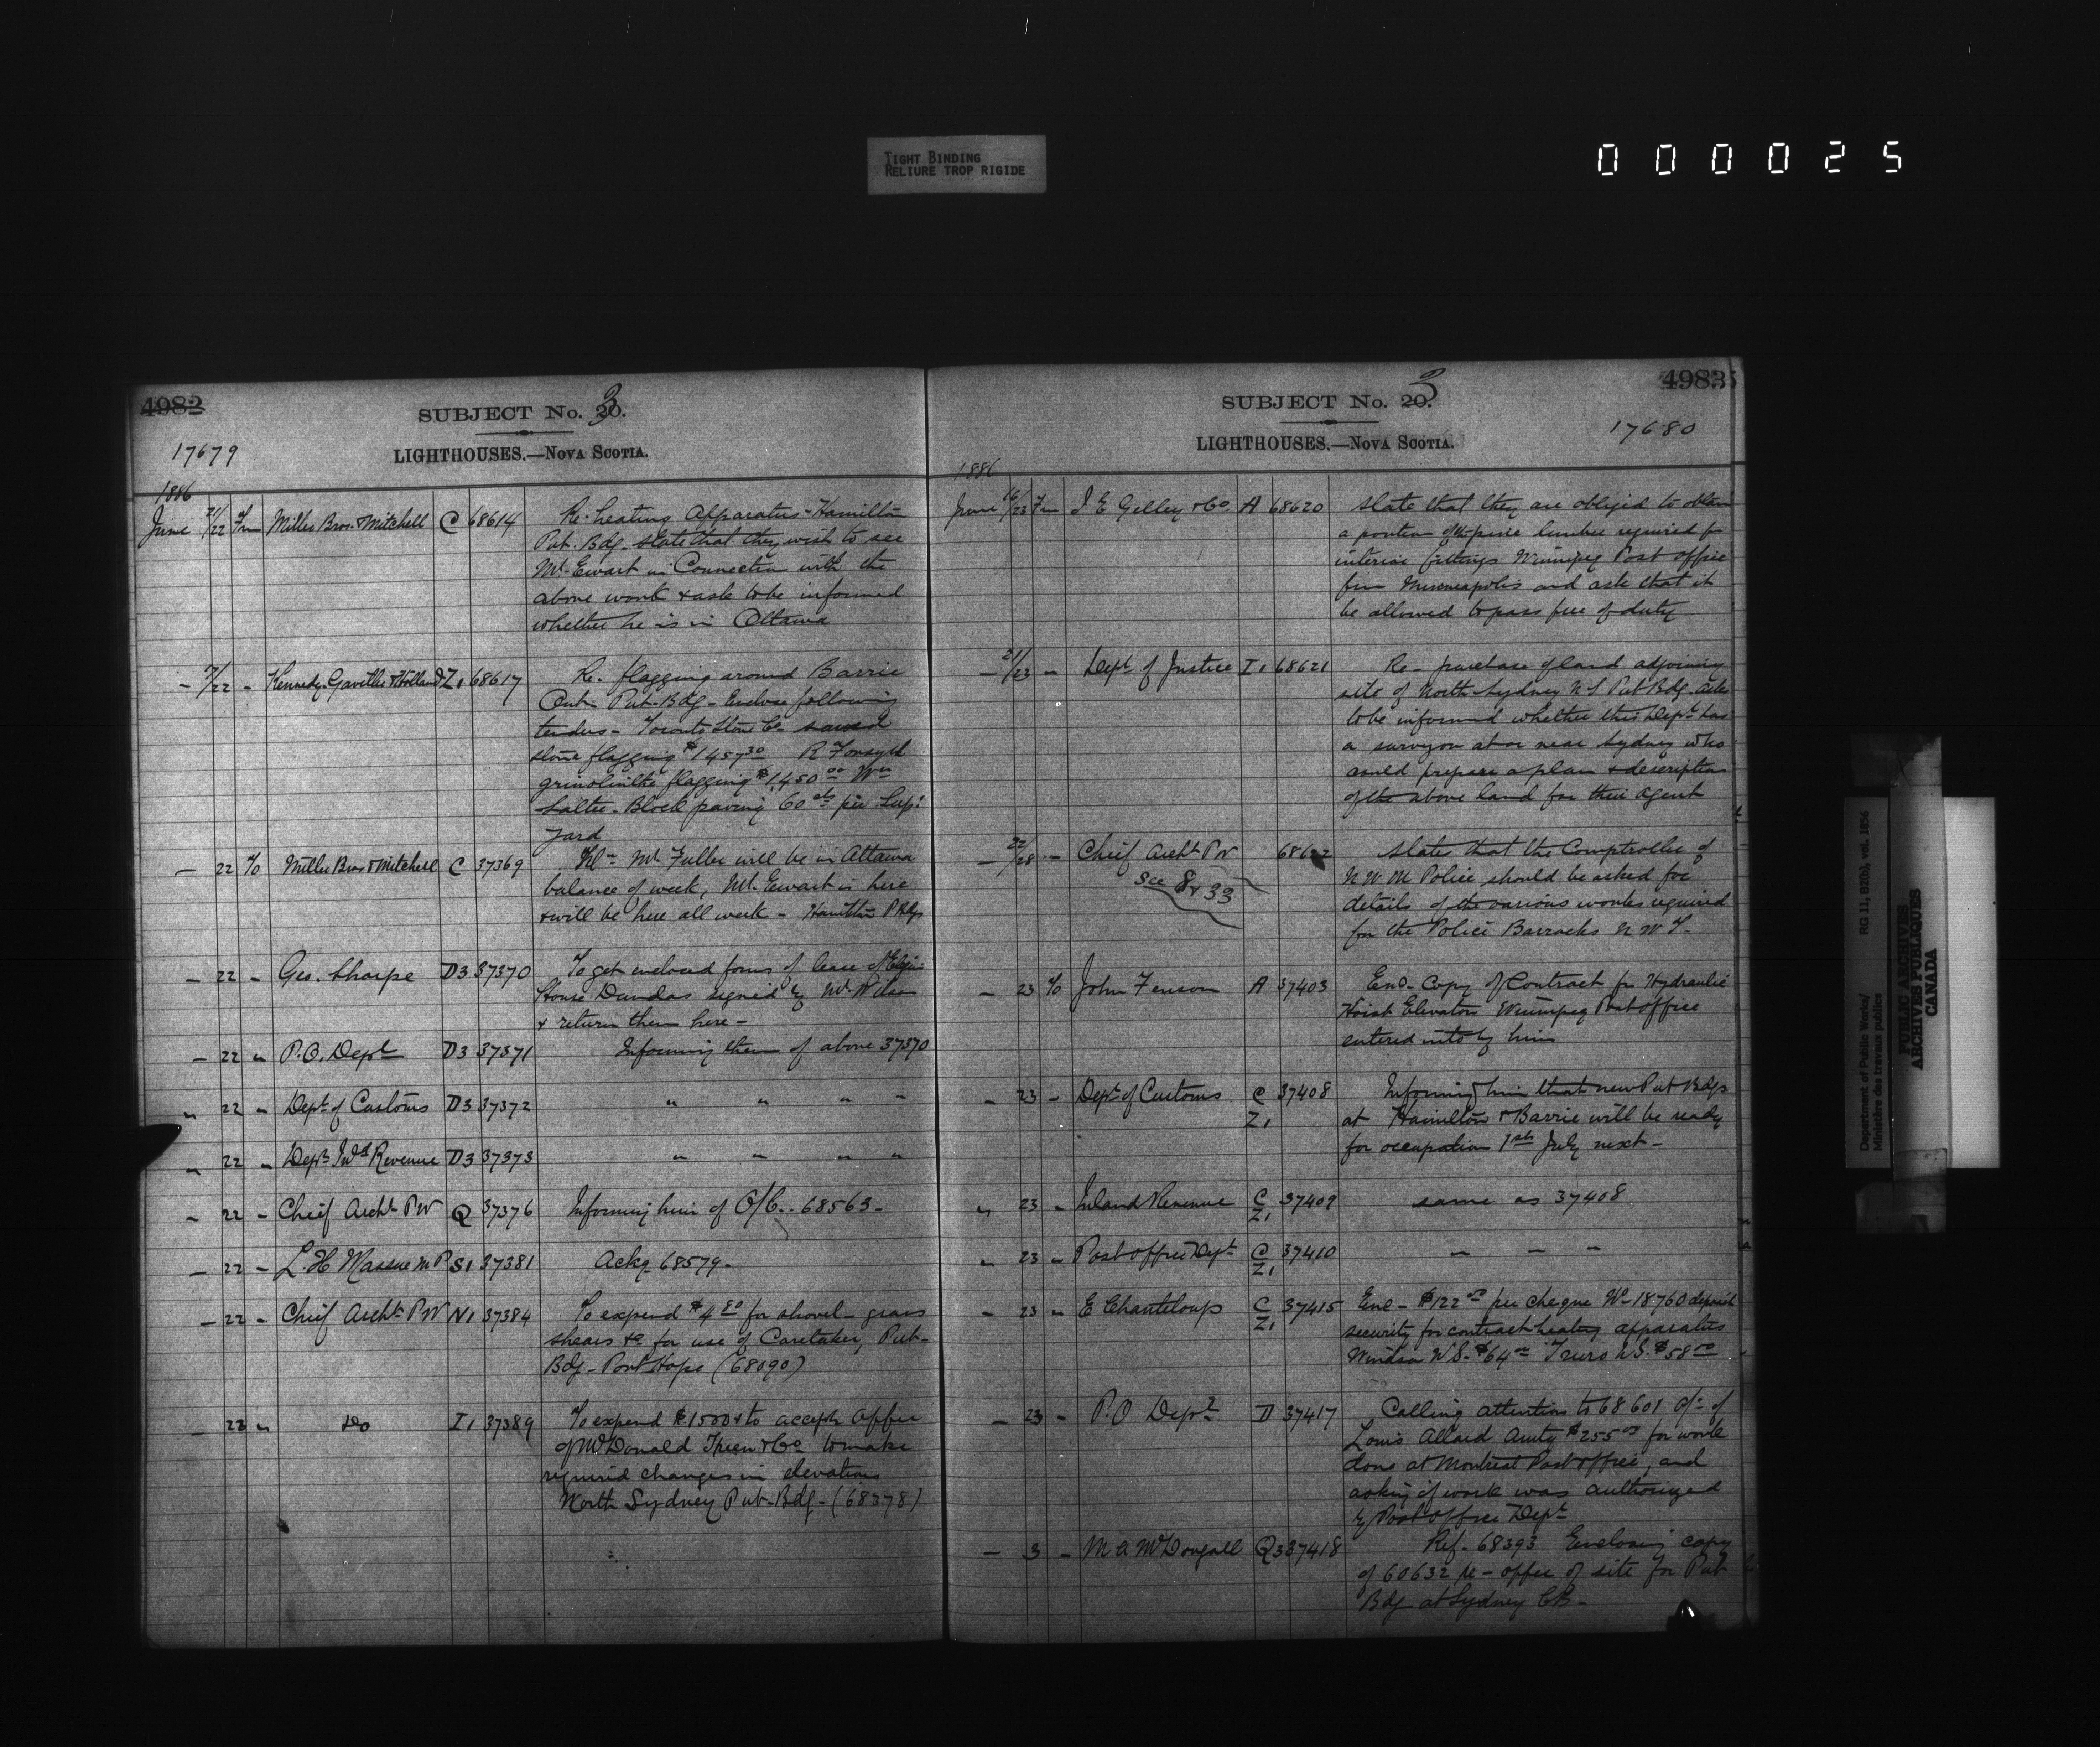 TIGHT BINDING
RELIURE TROP RIGIDE
000025
4982
SUBJECT No. 20. 3
17679
LIGHTHOUSES.—NOVA SCOTIA.
1886
June 21/22 Fm Miller Bros. & Mitchell C 68614 Re. heating Apparatus - Hamilton
Pub. Bdg. state that they wish to see
Mr. Ewart in Connection with the
above work & ask to be informed
whether he is in Ottawa
- /22 - Kennedy Gaviller & Holland Z1 68617 Re. flagging around Barrie
Ont. Pub. Bdg - Enclose following
tenders - Toronto Stone Co. sawed
stone flagging $1457 30 R Forsyth
grinolinthe flagging $1,450 00 Wm
Salter. Block paving 60 cts per Supl
yard
- 22 To Miller Bros & Mitchell C 37369 Tel - Mr. Fuller will be in Ottawa
balance of week, Mr. Ewart is here
& will be here all week - Hamilton P Bdgs
- 22 - Geo. Sharpe D3 37370 To get enclosed forms of lease of Elgin
House Dundas signed by Mr. Wilson
& return them here -
- 22 " P.O. Dept D3 37371 Informing them of above 37370
" 22 " Dept of Customs D3 37372 " " " "
" 22 " Dept Ind Revenue D3 37373 " " " "
- 22 - Chief Archt PW Q 37376 Informing him of O/C. 68563 -
- 22 - L. H Massue MP S1 37381 Ackg 68579 -
- 22 - Chief Archt PW N1 37384 To expend $4 80 for shovel - grass
shears &c for use of Caretaker, Pub -
Bdg - Port Hope (68090)
- 22 " Do I1 37389 To expend $1500 & to accept offer
of McDonald & Co to make
required changes in elevations
North Sydney Pub. Bdg - (68378)
4983
SUBJECT No. 20. 3
17680
LIGHTHOUSES.—NOVA SCOTIA.
1886
June 16/23 Fm J E Gelley & Co. A 68620 State that they are obliged to obtain
a portion of the pine lumber required for
interior fittings Winnipeg Post office
from Minneapolis and ask that it
be allowed to pass free of duty
- 21/23 - Dept of Justice I1 68621 Re - purchase of land adjoining
site of North Sydney N S Pub Bdg - ask
to be informed whether this Dept has
a surveyor at or near Sydney who
could prepare a plan & description
of the above land for their agent
- 22/23 - Chief Archt PW 68622 States that the Comptroller of
see 8 & 33
N W M Police should be asked for
details of the various works required
for the Police Barracks N W T -
- 23 To John Fensom A 37403 Enc - Copy of Contract for Hydraulic
Hoist Elevators Winnipeg Post office
entered into by him
- 23 - Dept of Customs C Z1 37408 Informing him that new Pub Bdgs
at Hamilton & Barrie will be ready
for occupation 1st July next -
" 23 - Inland Revenue C Z1 37409 same as 37408
" 23 " Post office Dept C Z1 37410 " " "
- 23 " E Chanteloup C Z1 37415 Enc - $122 00 per cheque No 18760 deposit
security for contract heating apparatus
Windsor N S - $64 00 Truro N S. $58 00
- 23 - P. O Dept D 37417 Calling attention to 68601 of
Louis Allard Amtg $255 00 for work
done at Montreal Post office, and
asking if work was authorized
by Post office Dept
- 3 - M A McDougall Q3 37418 Ref - 68393 Enclosing copy
of 60632 re - offer of site for Pub
Bdg at Sydney CB -
Department of Public Works/ RG 11, B2(b), vol. 1856
Ministère des travaux publics
PUBLIC ARCHIVES
ARCHIVES PUBLIQUES
CANADA